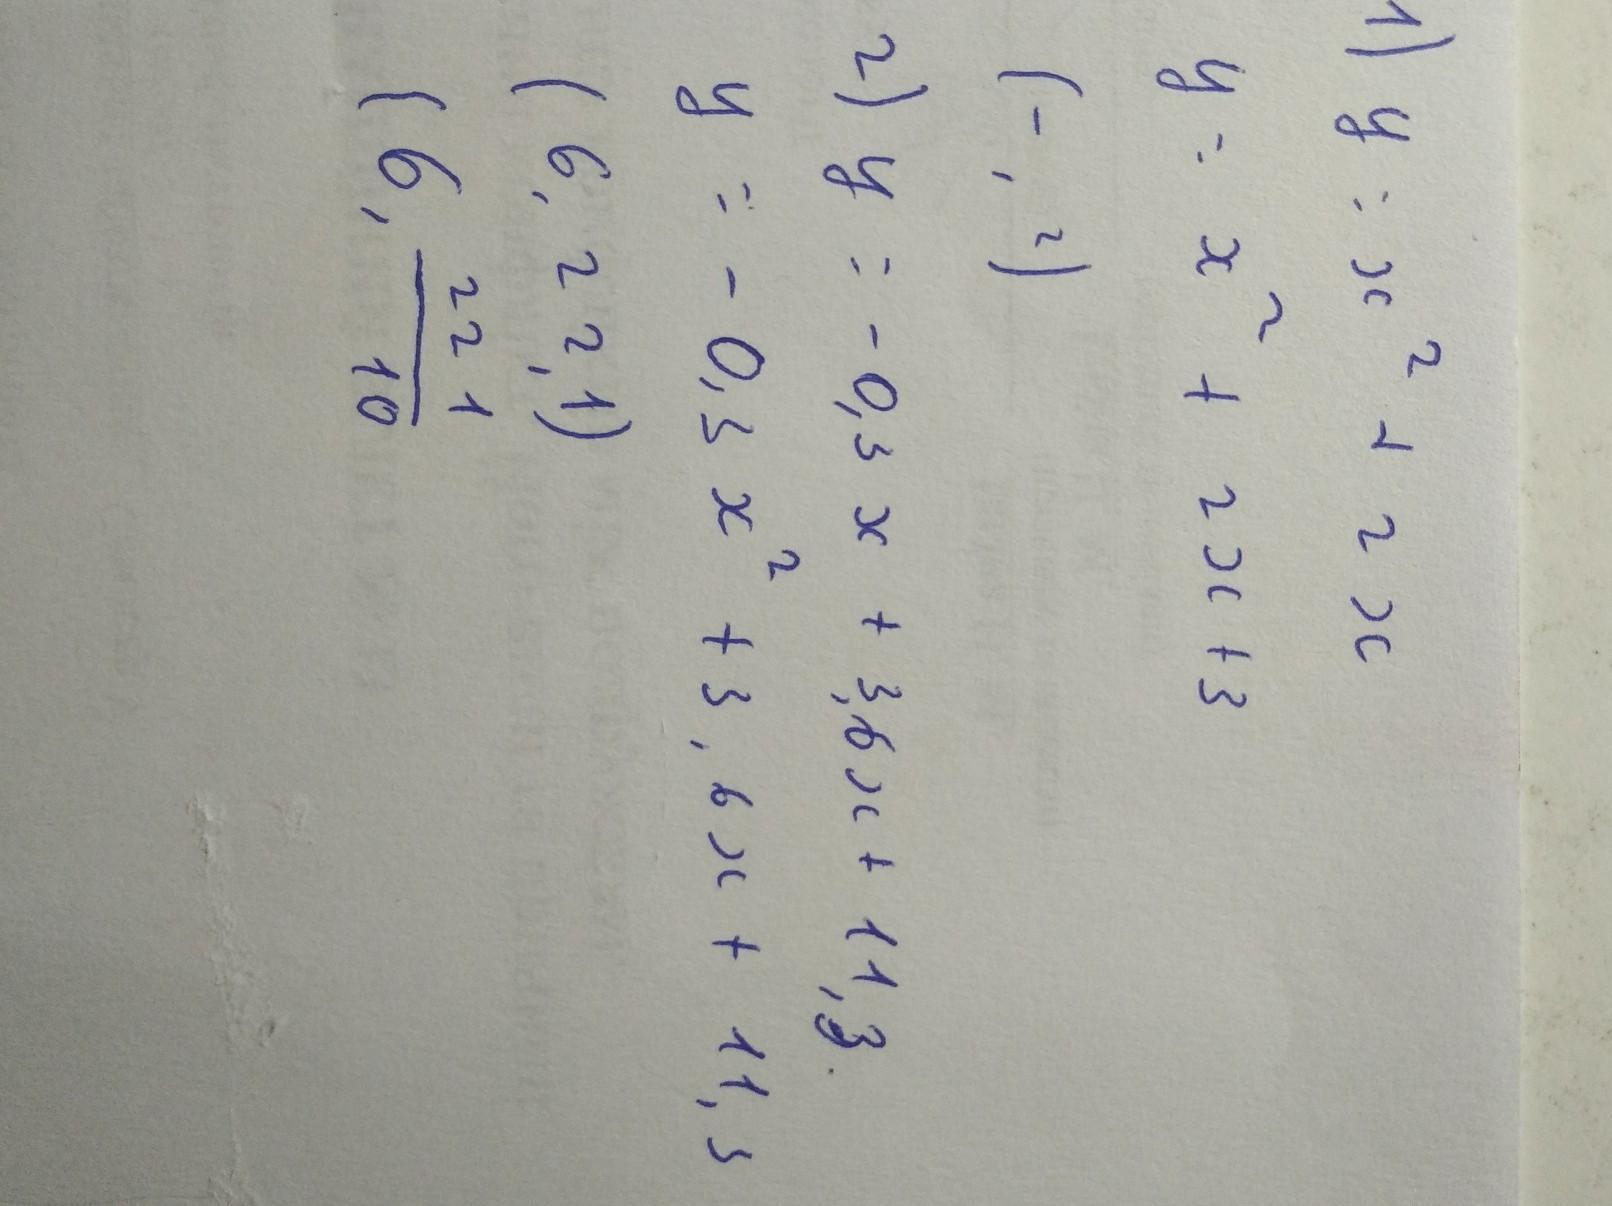 1) y = x² + 2x
y = x² + 2x + 3
(-, 2)
2) y = -0,3x + 3,6x + 11,3
y = -0,3x² + 3,6x + 11,3
(6, 22,1)
(6, 221/10